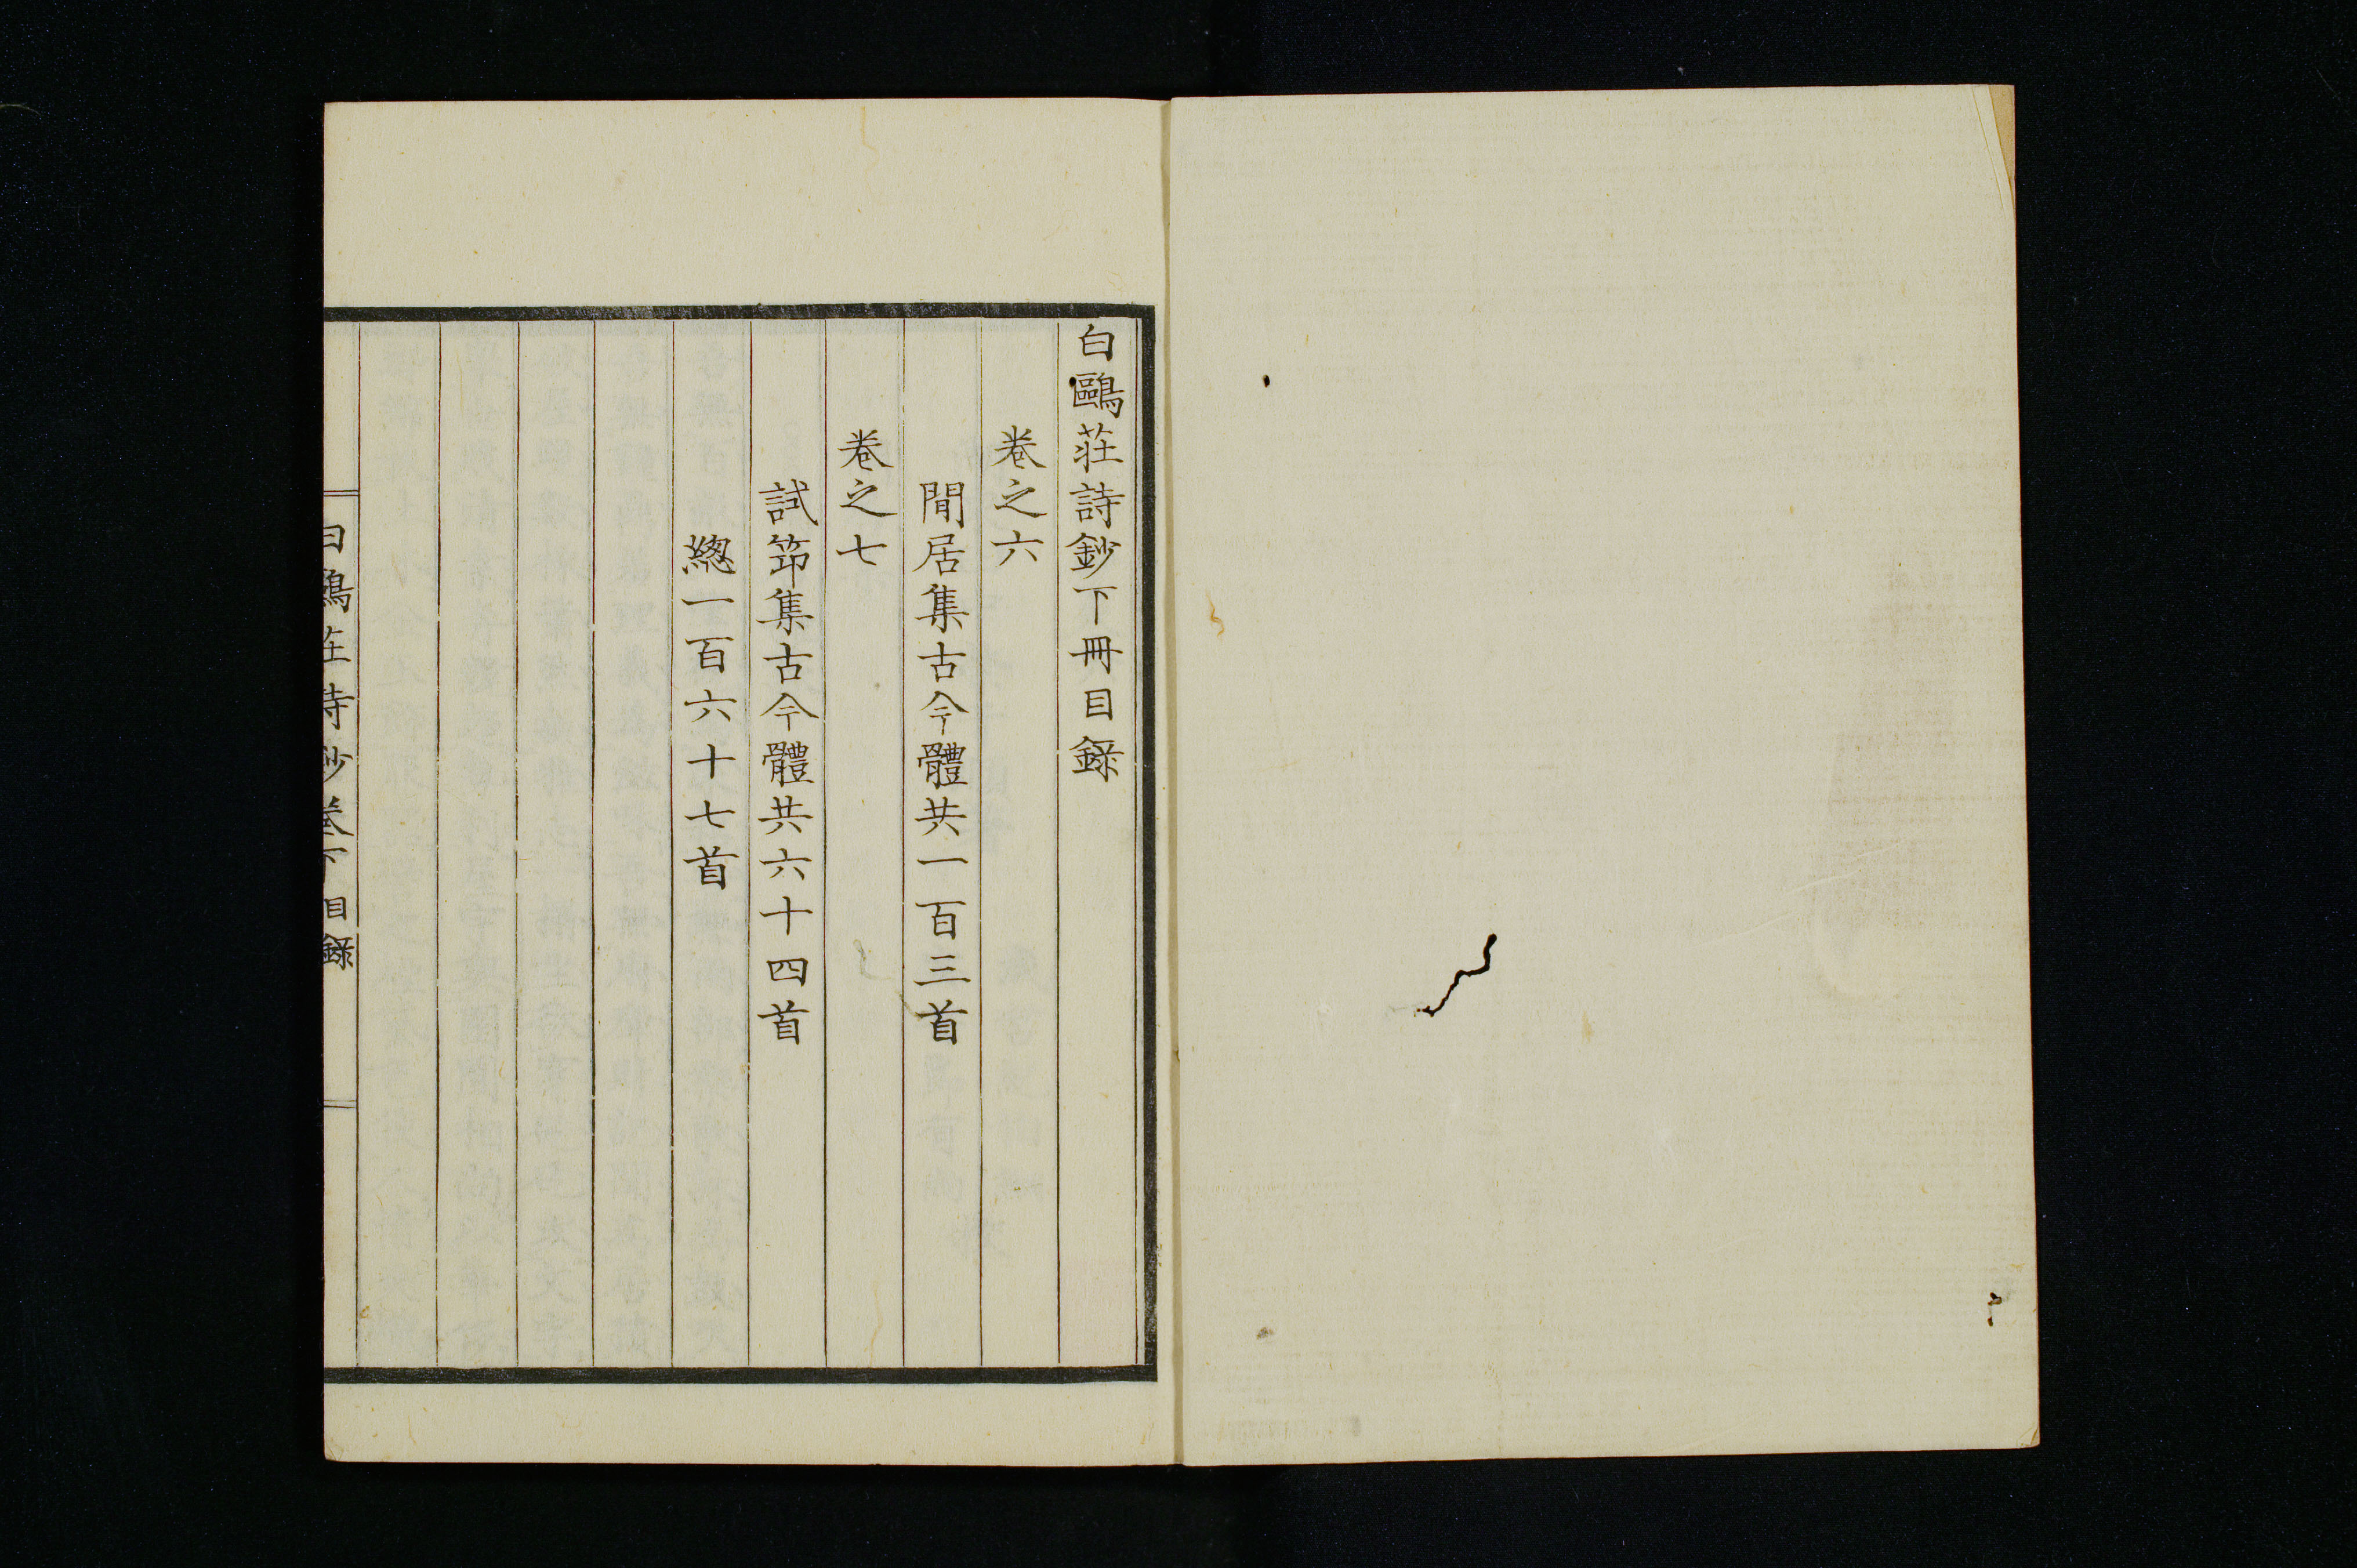 白鷗莊詩鈔下冊目錄
卷之六
閒居集古今體共一百三首
卷之七
試笻集古今體共六十四首
總一百六十七首
白鷗莊詩鈔卷下 目錄